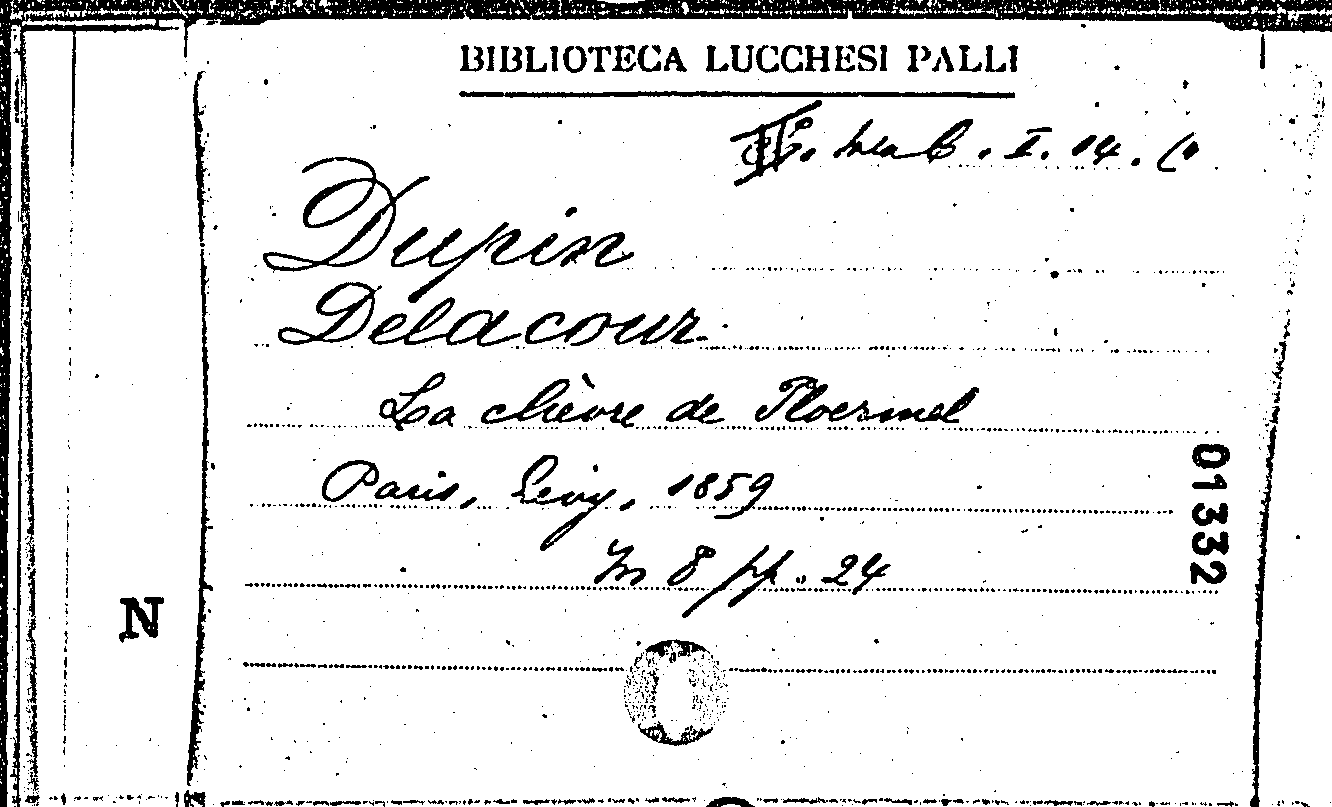 BIBLIOTECA LUCCHESI PALLI
Misc. I. 14.
Dupin
Delacour
La chèvre de Ploermel
Paris, Levy, 1859
In 8 pp. 24
01332
N